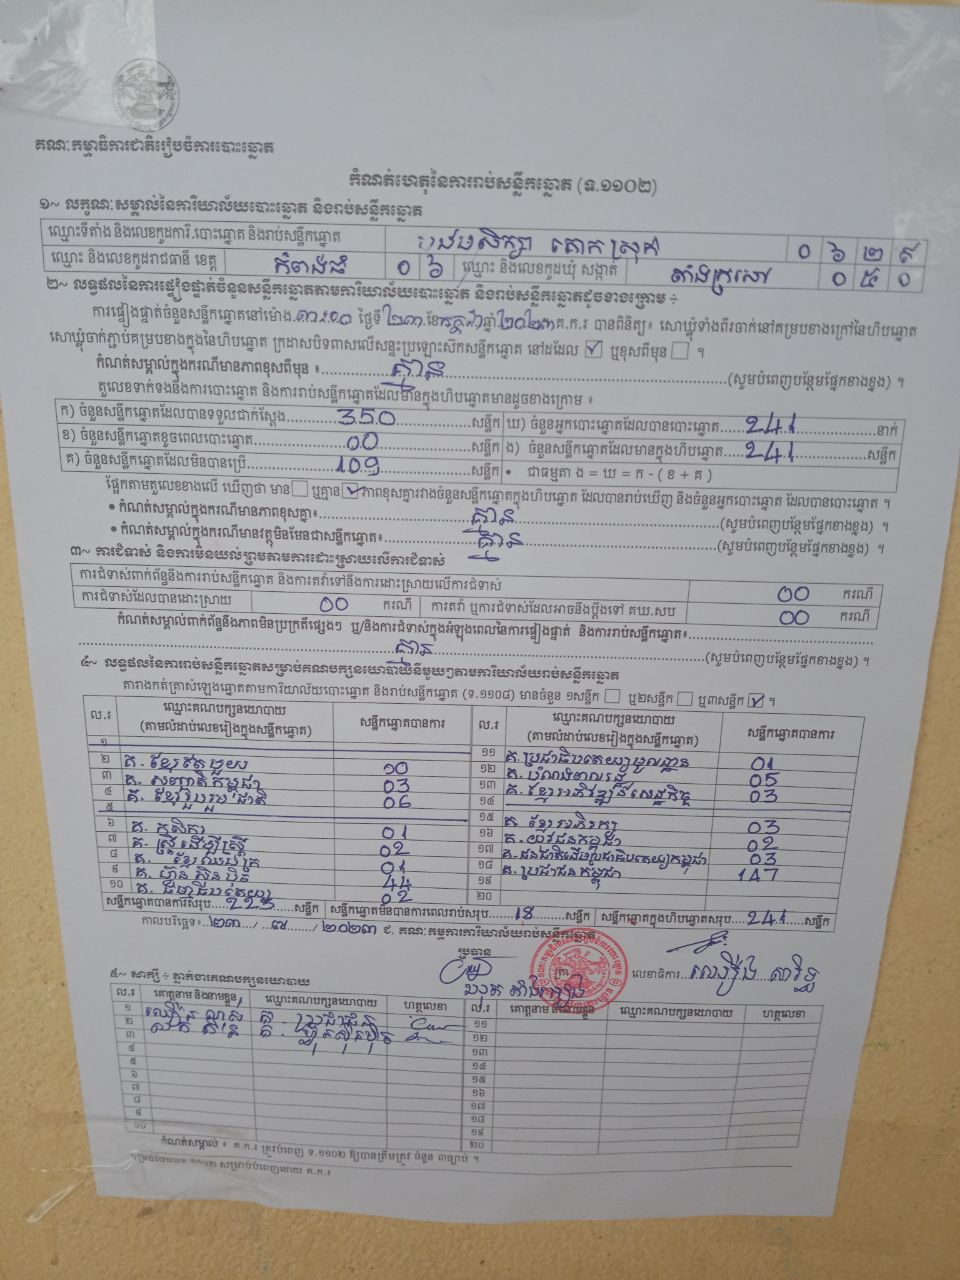 គណៈកម្មាធិការជាតិរៀបចំការបោះឆ្នោត
កំណត់ហេតុនៃការរាប់សន្លឹកឆ្នោត (ទ.១១០២)
១~ លក្ខណៈសម្គាល់នៃការិយាល័យបោះឆ្នោត និងរាប់សន្លឹកឆ្នោត
ឈ្មោះទីតាំង និងលេខកូដការិ.បោះឆ្នោត និងរាប់សន្លឹកឆ្នោត គោកស្រុក ០ ៦ ២ ៩
ឈ្មោះ និងលេខកូដរាជធានី ខេត្ត កំពង់ធំ ០ ៦ ឈ្មោះ និងលេខកូដឃុំ សង្កាត់ តាំងក្រសៅ ០ ៥ ០
២~ លទ្ធផលនៃការផ្ទៀងផ្ទាត់ចំនួនសន្លឹកឆ្នោតតាមការិយាល័យបោះឆ្នោត និងរាប់សន្លឹកឆ្នោតដូចខាងក្រោម ÷
ការផ្ទៀងផ្ទាត់ចំនួនសន្លឹកឆ្នោតនៅម៉ោង ថ្ងៃទី២៣ ខែកក្កដា ឆ្នាំ ២០២៣ គ.ក.រ បានពិនិត្យ៖ សោឃ្លុំទាំងពីរចាក់នៅគម្របខាងក្រៅនៃហិបឆ្នោត
សោឃ្លុំចាក់ភ្ជាប់គម្របខាងក្នុងនៃហិបឆ្នោត ក្រដាសបិទពាសលើសន្ទះប្រឡោះស៊កសន្លឹកឆ្នោត នៅដដែល ☑ ឬខុសពីមុន ☐ ។
កំណត់សម្គាល់ក្នុងករណីមានភាពខុសពីមុន ៖ គ្មាន (សូមបំពេញបន្ថែមផ្នែកខាងខ្នង) ។
តួលេខទាក់ទងនឹងការបោះឆ្នោត និងការរាប់សន្លឹកឆ្នោតដែលមានក្នុងហិបឆ្នោតមានដូចខាងក្រោម ៖
ក) ចំនួនសន្លឹកឆ្នោតដែលបានទទួលជាក់ស្តែង 350 សន្លឹក ឃ) ចំនួនអ្នកបោះឆ្នោតដែលបានបោះឆ្នោត 241 នាក់
ខ) ចំនួនសន្លឹកឆ្នោតខូចពេលបោះឆ្នោត 00 សន្លឹក ង) ចំនួនសន្លឹកឆ្នោតដែលមានក្នុងហិបឆ្នោត 241 សន្លឹក
គ) ចំនួនសន្លឹកឆ្នោតដែលមិនបានប្រើ 109 សន្លឹក • ជាធម្មតា ង = ឃ = ក - ( ខ + គ )
ផ្អែកតាមតួលេខខាងលើ ឃើញថា មាន ☐ ឬគ្មាន ☑ ភាពខុសគ្នារវាងចំនួនសន្លឹកឆ្នោតក្នុងហិបឆ្នោត ដែលបានរាប់ឃើញ និងចំនួនអ្នកបោះឆ្នោត ដែលបានបោះឆ្នោត ។
• កំណត់សម្គាល់ក្នុងករណីមានភាពខុសគ្នា៖ គ្មាន (សូមបំពេញបន្ថែមផ្នែកខាងខ្នង) ។
• កំណត់សម្គាល់ក្នុងករណីមានវត្ថុមិនមែនជាសន្លឹកឆ្នោត៖ គ្មាន (សូមបំពេញបន្ថែមផ្នែកខាងខ្នង) ។
៣~ ការជំទាស់ និងការមិនយល់ព្រមតាមការដោះស្រាយលើការជំទាស់
ការជំទាស់ពាក់ព័ន្ធនឹងការរាប់សន្លឹកឆ្នោត និងការតវ៉ាទៅនឹងការដោះស្រាយលើការជំទាស់ 00 ករណី
ការជំទាស់ដែលបានដោះស្រាយ 00 ករណី ការតវ៉ា ឬការជំទាស់ដែលអាចនឹងប្តឹងទៅ គឃ.សប 00 ករណី
កំណត់សម្គាល់ពាក់ព័ន្ធនឹងភាពមិនប្រក្រតីផ្សេងៗ ឬ/និងការជំទាស់ក្នុងអំឡុងពេលនៃការផ្ទៀងផ្ទាត់ និងការរាប់សន្លឹកឆ្នោត៖
គ្មាន (សូមបំពេញបន្ថែមផ្នែកខាងខ្នង) ។
៤~ លទ្ធផលនៃការរាប់សន្លឹកឆ្នោតសម្រាប់គណបក្សនយោបាយនីមួយៗតាមការិយាល័យរាប់សន្លឹកឆ្នោត
តារាងកត់ត្រាសំឡេងឆ្នោតតាមការិយាល័យបោះឆ្នោត និងរាប់សន្លឹកឆ្នោត (ទ.១១០៨) មានចំនួន ១សន្លឹក ☐ ឬ២សន្លឹក ☐ ឬ៣សន្លឹក ☑ ។
ល.រ ឈ្មោះគណបក្សនយោបាយ (តាមលំដាប់លេខរៀងក្នុងសន្លឹកឆ្នោត) សន្លឹកឆ្នោតបានការ ល.រ ឈ្មោះគណបក្សនយោបាយ (តាមលំដាប់លេខរៀងក្នុងសន្លឹកឆ្នោត) សន្លឹកឆ្នោតបានការ
១ ១១ គ.ប្រជាធិបតេយ្យមូលដ្ឋាន 01
២ គ. ខ្មែររួបរួម 10 ១២ គ. 05
៣ គ. សញ្ជាតិកម្ពុជា 03 ១៣ គ. ខ្មែរអភិវឌ្ឍន៍សេដ្ឋកិច្ច 03
៤ គ. ខ្មែររួបរួមជាតិ 06 ១៤
៥ ១៥ គ. ខ្មែរអភិរក្ស 03
៦ គ. កសិករ 01 ១៦ គ. យុវជនកម្ពុជា 02
៧ គ. ស្ត្រីដើម្បីស្ត្រី 02 ១៧ គ. ជនជាតិដើមប្រជាធិបតេយ្យកម្ពុជា 03
៨ គ. ខ្មែរ 01 ១៨ គ. ប្រជាជនកម្ពុជា 147
៩ គ. ហ៊្វុនស៊ិនប៉ិច 44 ១៩
១០ គ. ធិបតេយ្យ 02 ២០
សន្លឹកឆ្នោតបានការសរុប 223 សន្លឹក សន្លឹកឆ្នោតមិនបានការពេលរាប់សរុប 18 សន្លឹក សន្លឹកឆ្នោតក្នុងហិបឆ្នោតសរុប 241 សន្លឹក
កាលបរិច្ឆេទ៖ ២៣ / ០៧ / ២០២៣ ៩. គណៈកម្មការការិយាល័យរាប់សន្លឹកឆ្នោត
ប្រធាន លេខាធិការ
៥~ សាក្សី ÷ ភ្នាក់ងារគណបក្សនយោបាយ
ល.រ គោត្តនាម និងនាមខ្លួន ឈ្មោះគណបក្សនយោបាយ ហត្ថលេខា ល.រ គោត្តនាម និងនាមខ្លួន ឈ្មោះគណបក្សនយោបាយ ហត្ថលេខា
១ គ. ប្រជាជន ១១
២ គ. ហ៊្វុនស៊ិនប៉ិច ១២
៣ ១៣
៤ ១៤
៥ ១៥
៦ ១៦
៧ ១៧
៨ ១៨
៩ ១៩
១០ ២០
កំណត់សម្គាល់ ៖ គ.ក.រ ត្រូវបំពេញ ទ.១១០២ ឱ្យបានត្រឹមត្រូវ ចំនួន ៣ច្បាប់ ។
១១០២ សម្រាប់បំពេញដោយ គ.ក.រ